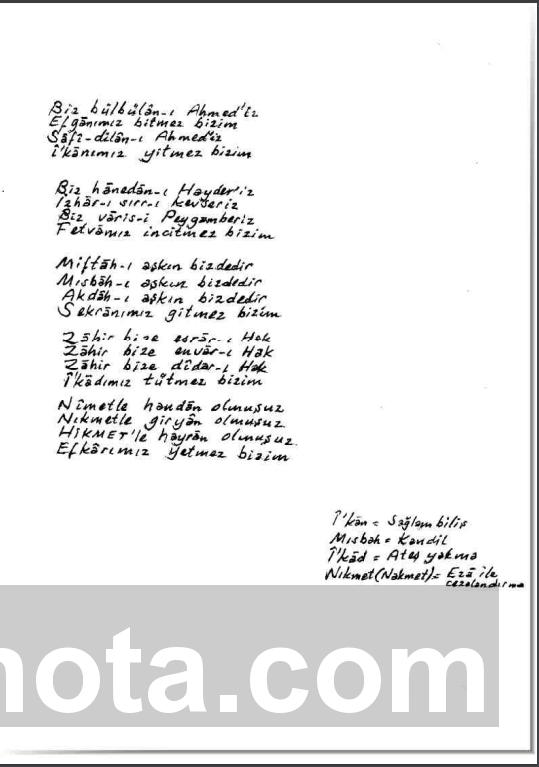 Biz bülbülân-ı Ahmed'iz
Efgânımız bitmez bizim
Sâfî-dîlân-ı Ahmed'iz
Î'kânımız yitmez bizim
Biz hânedân-ı Hayder'iz
İzhâr-ı sırr-ı Kevseriz
Biz vâris-i Peygamberiz
Fetvâmız incitmez bizim
Miftâh-ı aşkın bizdedir
Mısbâh-ı aşkın bizdedir
Akdâh-ı aşkın bizdedir
Sekrânımız gitmez bizim
Zâhir bize esrâr-ı Hak
Zâhir bize envâr-ı Hak
Zâhir bize dîdar-ı Hak
Î'kâdımız tütmez bizim
Nîmetle handân olmuşuz
Nıkmetle giryân olmuşuz
HİKMET'le hayrân olmuşuz
Efkârımız yetmez bizim
Î'kân = Sağlam biliş
Mısbah = Kandil
Î'kâd = Ateş yakma
Nıkmet (Nakmet) = Ezâ ile
cezalandırma
nota.com